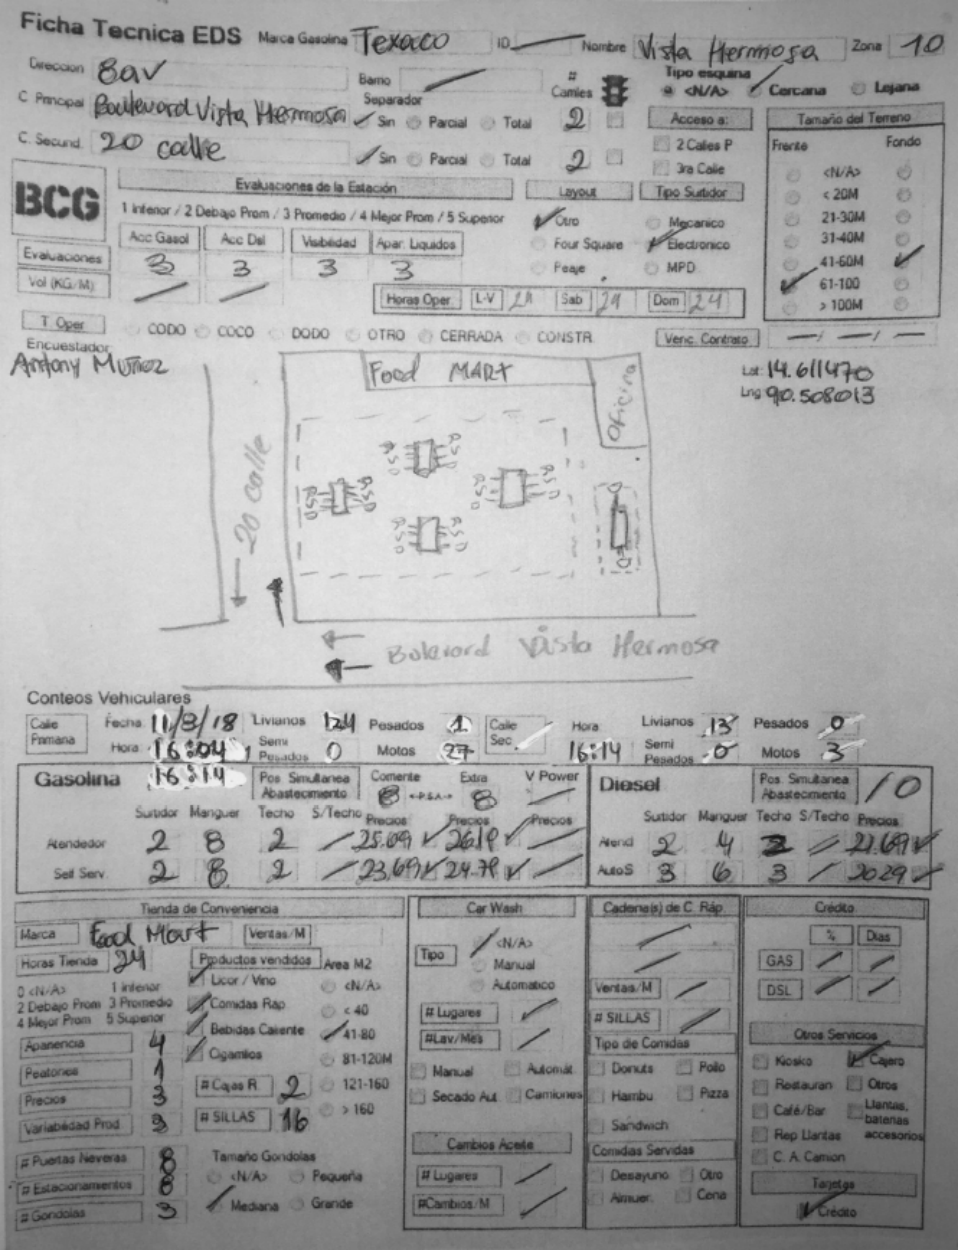 Ficha Tecnica EDS Marca Gasolina Texaco ID Nombre Vista Hermosa Zona 10
Direccion 8av Barrio # Carriles Tipo esquina <N/A> Cercana Lejana
C Principal Boulevard Vista Hermosa Separador Sin Parcial Total 2 Acceso a: Tamaño del Terreno
C. Secund. 20 calle Sin Parcial Total 2 2 Calles P 3ra Calle Frente Fondo
BCG Evaluaciones de la Estación Layout Tipo Surtidor <N/A>
1 Inferior / 2 Debajo Prom / 3 Promedio / 4 Mejor Prom / 5 Superior Otro Mecanico < 20M
Acc Gasol Acc Dsl Visibilidad Apar. Liquidos Four Square Electronico 21-30M
Evaluaciones 3 3 3 3 Peaje MPD 31-40M
Vol (KG/M) Horas Oper. L-V 24 Sab 24 Dom 24 41-60M
61-100
> 100M
T. Oper CODO COCO DODO OTRO CERRADA CONSTR Venc. Contrato
Encuestador
Antony Muñoz
Lat 14.611470
Lng 90.508013
Food MART
Oficina
ASD ASD
ASD ASD
ASD ASD
ASD ASD
D
D
20 calle
Bolevard Vista Hermosa
Conteos Vehiculares
Calle Primaria Fecha 11/8/18 Livianos 124 Pesados 1 Calle Sec. Hora Livianos 13 Pesados 0
Hora 16:04 Semi Pesados 0 Motos 27 16:14 Semi Pesados 0 Motos 3
Gasolina 16:14 Pos Simultanea Abastecimiento Corriente 8 <-P.S.A-> Extra 8 V Power Diesel Pos. Simultanea Abastecimiento 10
Surtidor Manguer Techo S/Techo Precios Precios Precios Surtidor Manguer Techo S/Techo Precios
Atendedor 2 8 2 25.09 26.19 Atend 2 4 2 21.69
Self Serv. 2 8 2 23.69 24.79 AutoS 3 6 3 20.29
Tienda de Conveniencia Car Wash Cadena(s) de C. Ráp. Crédito
Marca Food Mart Ventas/M Tipo <N/A> % Dias
Horas Tienda 24 Productos vendidos Area M2 Manual GAS
0 <N/A> 1 Inferior Licor / Vino <N/A> Automatico Ventas/M DSL
2 Debajo Prom 3 Promedio Comidas Rap < 40 # Lugares # SILLAS
4 Mejor Prom 5 Superior Bebidas Caliente 41-80 #Lav/Mes Tipo de Comidas Otros Servicios
Apariencia 4 Cigarrillos 81-120M Manual Automát Donuts Pollo Kiosko Cajero
Peatones 1 # Cajas R 2 121-160 Secado Aut. Camiones Hambu Pizza Restauran Otros
Precios 3 # SILLAS 16 > 160 Sandwich Café/Bar Llantas, baterias accesorios
Variabilidad Prod. 3 Cambios Aceite Comidas Servidas Rep Llantas
# Puertas Neveras 8 Tamaño Gondolas # Lugares Desayuno Otro C. A. Camion
# Estacionamientos <N/A> Pequeña #Cambios/M Almuer. Cena Tarjetas
# Gondolas 3 Mediana Grande Crédito